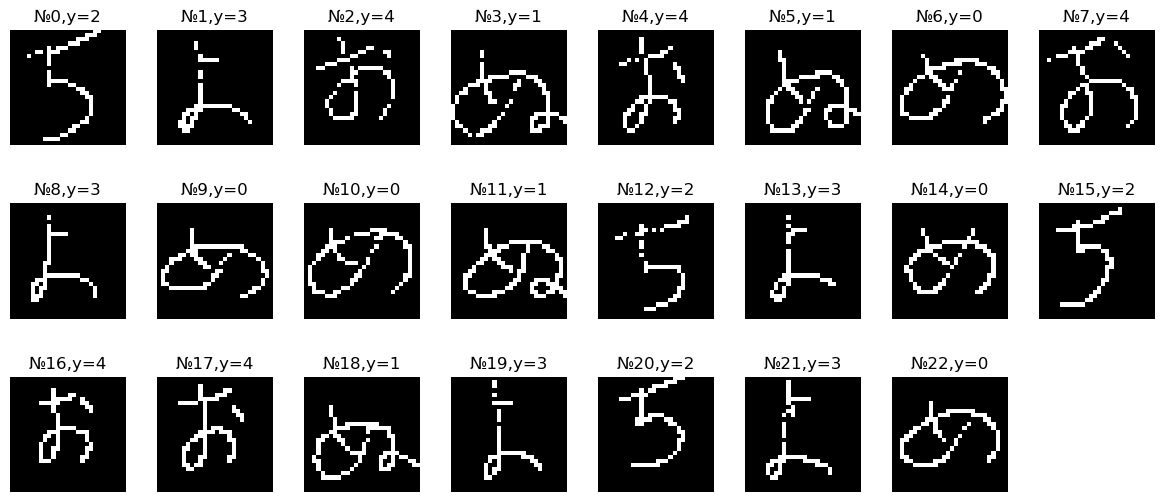 №0,y=2 №1,y=3 №2,y=4 №3,y=1 №4,y=4 №5,y=1 №6,y=0 №7,y=4
ち よ お ぬ お ぬ め お
№8,y=3 №9,y=0 №10,y=0 №11,y=1 №12,y=2 №13,y=3 №14,y=0 №15,y=2
よ め め ぬ ち よ め ち
№16,y=4 №17,y=4 №18,y=1 №19,y=3 №20,y=2 №21,y=3 №22,y=0
お お ぬ よ ち よ め